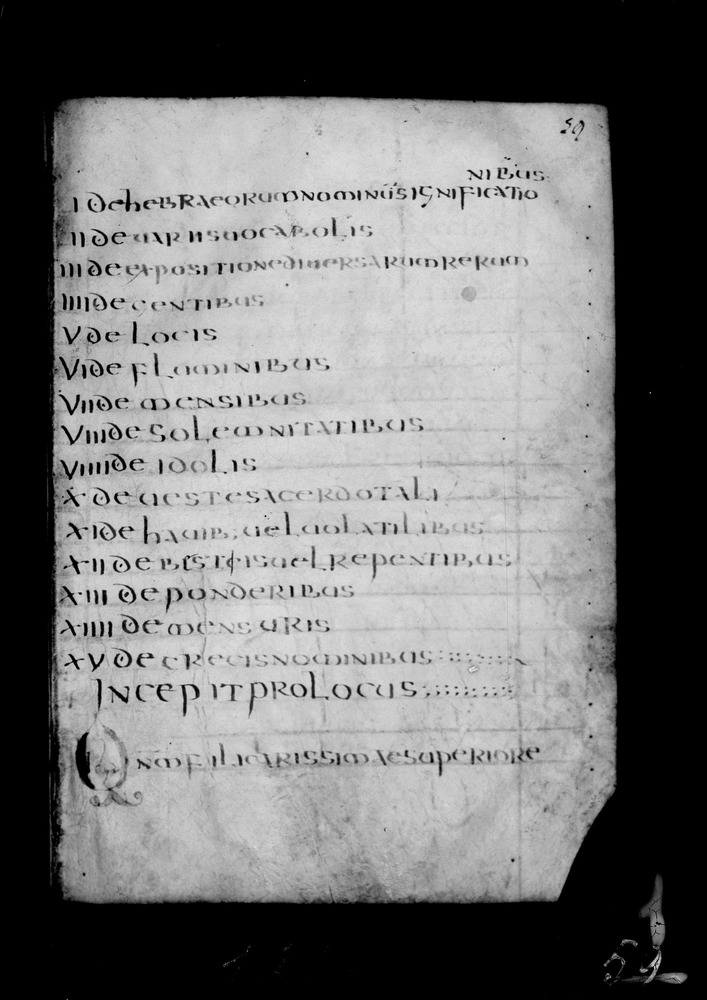 59
NIBUS
I DE HEBRAEORUM NOMINŪ SIGNIFICATIO
II DE UARIIS UOCABOLIS
III DE EXPOSITIONE DIUERSARUM RERUM
IIII DE GENTIBUS
V DE LOCIS
VI DE FLUMINIBUS
VII DE MENSIBUS
VIII DE SOLEMNITATIBUS
VIIII DE IDOLIS
X DE UESTE SACERDOTALI
XI DE hAUIB; UEL UOLATILIBUS
XII DE BESTIIS UEL REPENTIBUS
XIII DE PONDERIBUS
XIIII DE MENSURIS
XV DE GRECIS NOMINIBUS
INCEPIT PROLOCUS
QNM FILI CARISSIMAE SUPERIORE
52